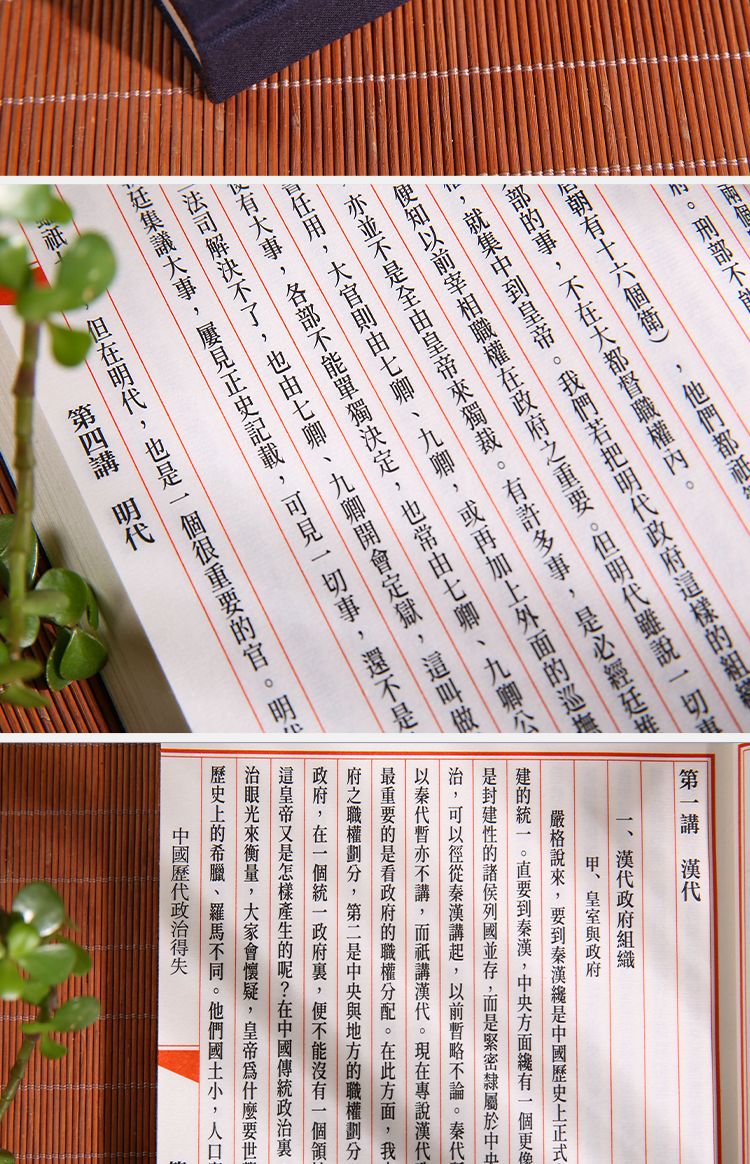 兩個
府。刑部不能
朝有十六個衛），他們都祇
部的事，不在大都督職權內。
，就集中到皇帝。我們若把明代政府這樣的組織
便知以前宰相職權在政府之重要。但明代雖說一切事
亦並不是全由皇帝來獨裁。有許多事，是必經廷推
任用，大官則由七卿、九卿，或再加上外面的巡撫
有大事，各部不能單獨決定，也常由七卿、九卿公
法司解決不了，也由七卿、九卿開會定獄，這叫做
廷集議大事，屢見正史記載，可見一切事，還不是
但在明代，也是一個很重要的官。明代
第四講 明代
第一講 漢代
一、漢代政府組織
甲、皇室與政府
嚴格說來，要到秦漢纔是中國歷史上正式
建的統一。直要到秦漢，中央方面纔有一個更像
是封建性的諸侯列國並存，而是緊密隸屬於中央
治，可以徑從秦漢講起，以前暫略不論。秦代
以秦代暫亦不講，而祇講漢代。現在專說漢代
最重要的是看政府的職權分配。在此方面，我
府之職權劃分，第二是中央與地方的職權劃分
政府，在一個統一政府裏，便不能沒有一個領
這皇帝又是怎樣產生的呢？在中國傳統政治裏
治眼光來衡量，大家會懷疑，皇帝爲什麼要世
歷史上的希臘、羅馬不同。他們國土小，人口
中國歷代政治得失